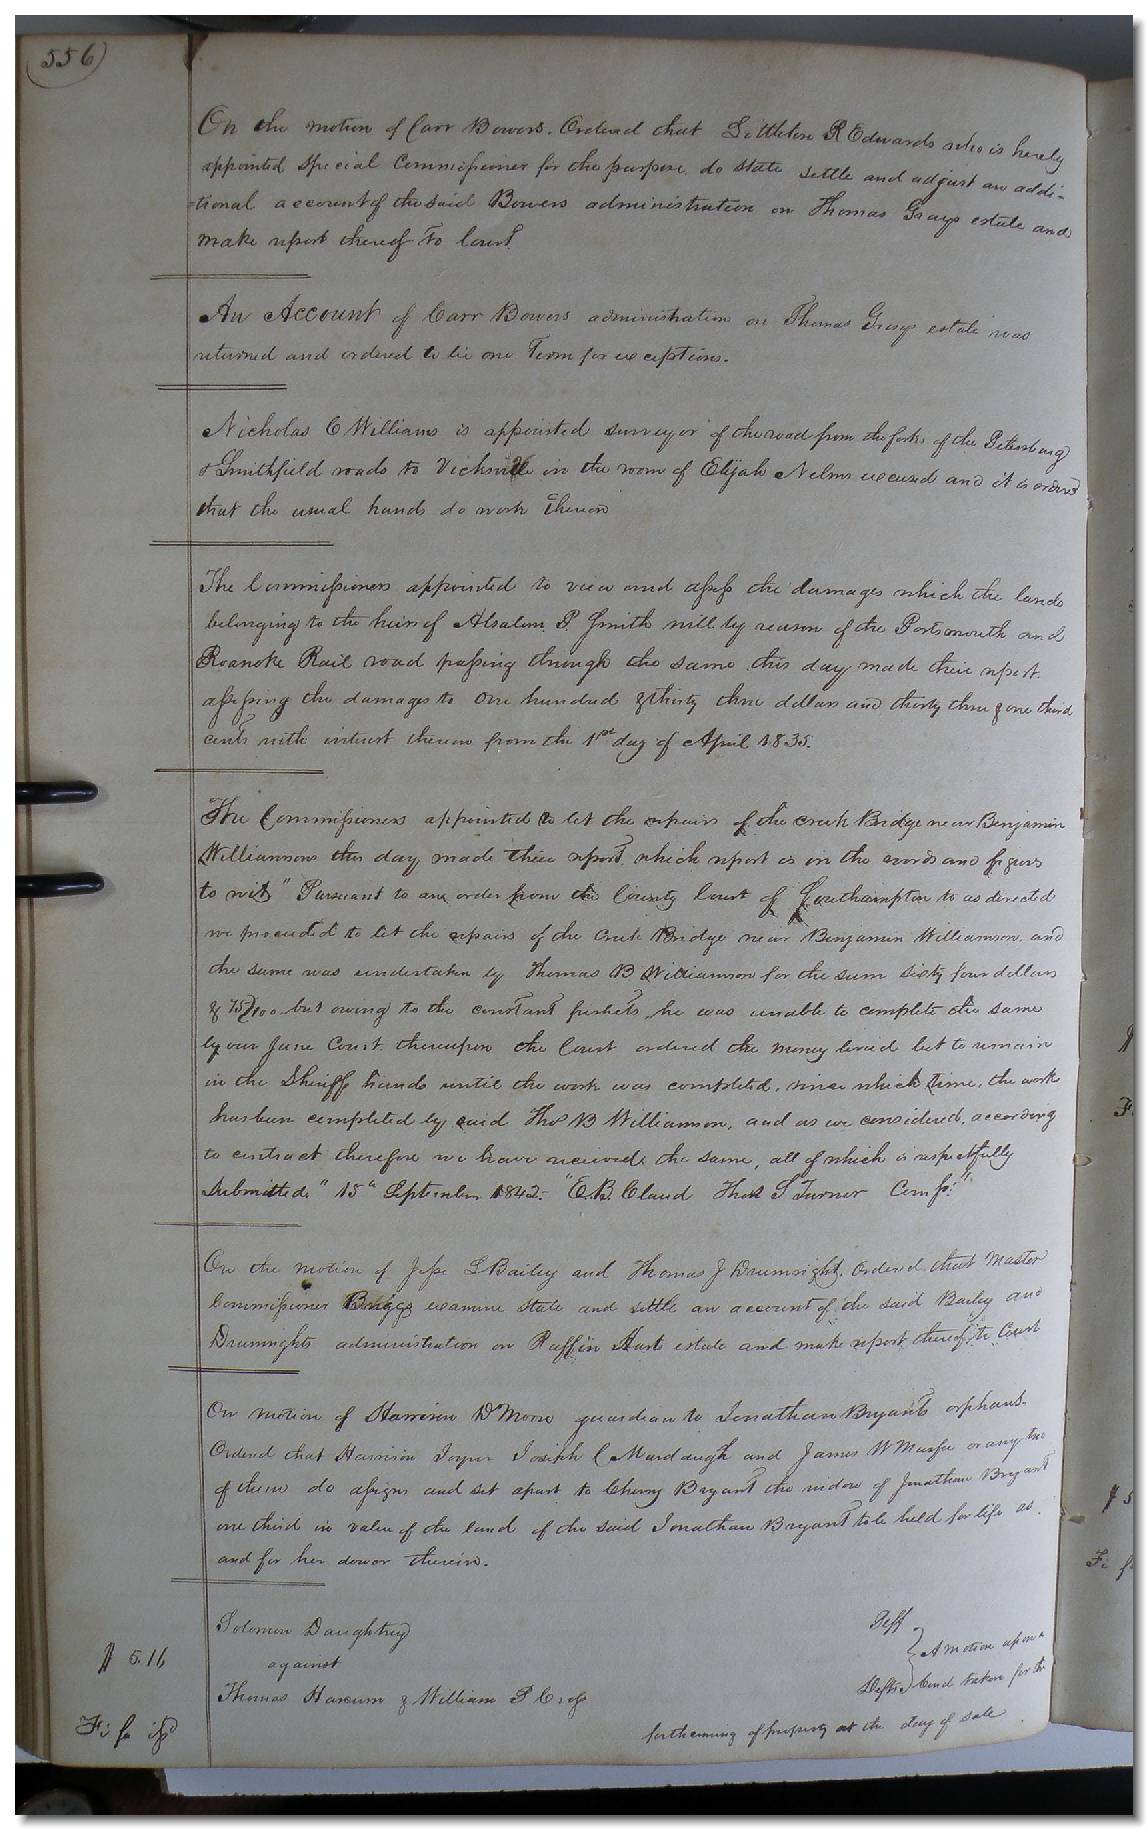 556
On the motion of Carr Bowers. Ordered that Littleton R Edwards who is hereby
appointed special Commissioner for the purpose, do state settle and adjust an addi-
tional account of the said Bowers administration on Thomas Grays estate and
make report thereof to Court.
An Account of Carr Bowers administration on Thomas Grays estate was
returned and ordered to lie one Term for exceptions.
Nicholas C Williams is appointed surveyor of the road from the forks of the Petersburg
& Smithfield roads to Vicksville in the room of Elijah Nelms excused and it is ordered
that the usual hands do work thereon
The Commissioners appointed to view and assess the damages which the lands
belonging to the heirs of Absalom P. Smith will by reason of the Portsmouth and
Roanoke Rail road passing through the same this day made their report.
assessing the damages to one hundred & thirty three dollars and thirty three & one third
cents with interest thereon from the 1st day of April 1835.
The Commissioners appointed to let the repairs of the creek Bridge near Benjamin
Williamsons this day made their report, which report is in the words and figures
to wit, " Pursuant to an order from the County Court of Southampton to as directed
we proceeded to let the repairs of the Creek Bridge near Benjamin Williamson and
the same was undertaken by Thomas B Williamson for the sum sixty four dollars
& 75/100 but owing to the constant freshets he was unable to complete the same
by our June Court. thereupon the Court ordered the money levied but to remain
in the Sheriffs hands until the work was completed, since which time, the work
has been completed by said Thos B Williamson, and as we considered, according
to contract therefore we have received the same, all of which is respectfully
submitted," 15th September 1842. "E.B. Claud Thos S Turner Comss."
On the motion of Jesse L Bailey and Thomas J Drumright. Ordered that Master
Commissioner Briggs examine state and settle an account of the said Bailey and
Drumrights administration on Ruffin Harts estate and make report thereof to Court
On motion of Harrison D Moore guardian to Jonathan Bryants orphans.
Ordered that Harrison Joyner Joseph C Murdaugh and James W Murfee or any two
of them do assign and set apart to Cherry Bryant the widow of Jonathan Bryant
one third in value of the land of the said Jonathan Bryant to be held for life as
and for her dower therein.
Solomon Daughtrey Plff
against A motion upon a
$ 5.16
Thomas Harcum & William P Defts bond taken for the
Fi fa issd
forthcoming of property at the day of sale